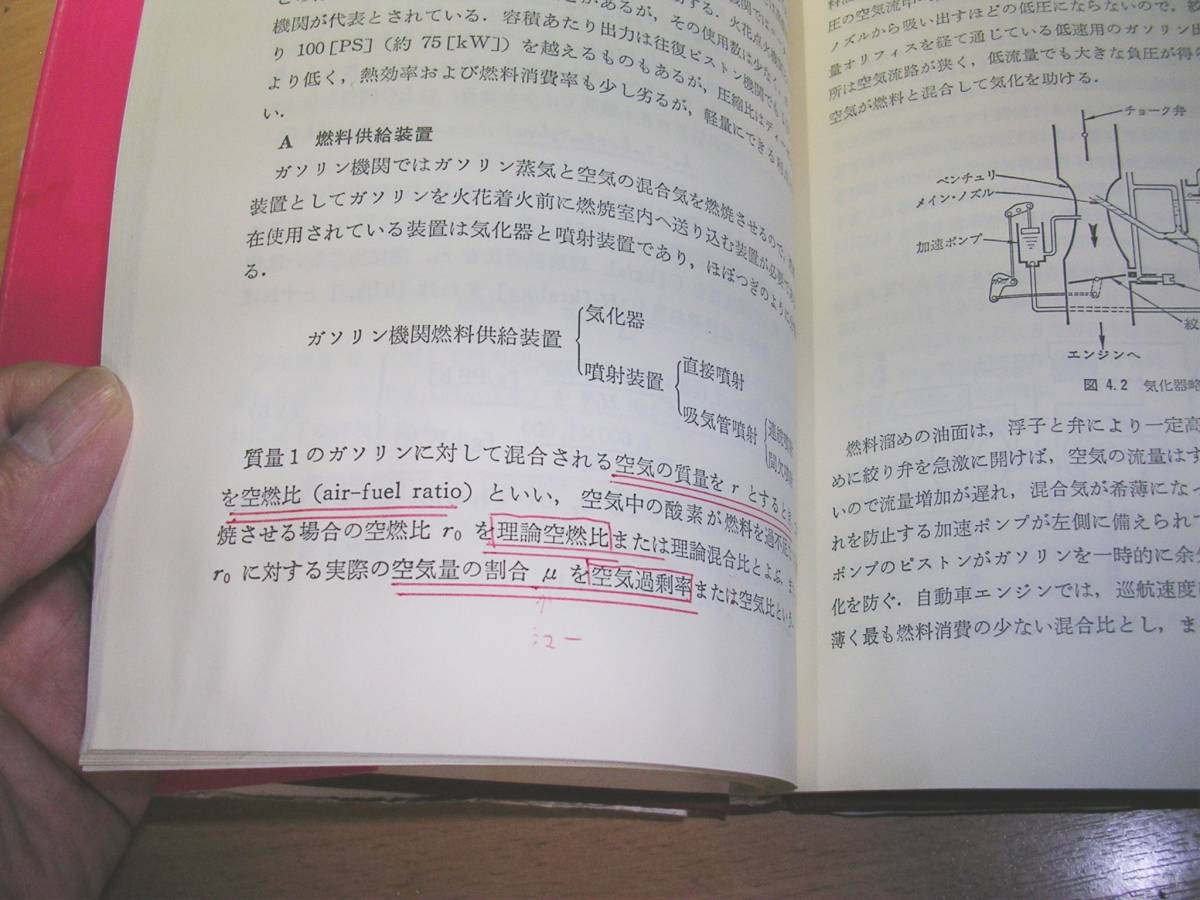 機関が代表とされている．容積あたり出力は往復ピストン機関でも
り 100［PS］（約 75［kW］）を越えるものもあるが，圧縮比はディー
より低く，熱効率および燃料消費率も少し劣るが，軽量にできる
い．
A 燃料供給装置
ガソリン機関ではガソリン蒸気と空気の混合気を燃焼させるので，
装置としてガソリンを火花着火前に燃焼室内へ送り込む装置が必要で
在使用されている装置は気化器と噴射装置であり，ほぼつぎのように
る．
ガソリン機関燃料供給装置
気化器
噴射装置
直接噴射
吸気管噴射
質量1のガソリンに対して混合される空気の質量を r とするとき
を空燃比（air-fuel ratio）といい，空気中の酸素が燃料を過不足
焼させる場合の空燃比 r0 を理論空燃比または理論混合比とよぶ．ま
r0 に対する実際の空気量の割合 μ を空気過剰率または空気比という．
ミュー
圧の空気流中
ノズルから吸い出すほどの低圧にならないので，絞
量オリフィスを経て通じている低速用のガソリン
所は空気流路が狭く，低流量でも大きな負圧が得
空気が燃料と混合して気化を助ける．
チョーク弁
ベンチュリ
メイン・ノズル
加速ポンプ
絞
エンジンへ
図 4.2 気化器略
燃料溜めの油面は，浮子と弁により一定高
めに絞り弁を急激に開けば，空気の流量はす
いので流量増加が遅れ，混合気が希薄になっ
れを防止する加速ポンプが左側に備えられ
ポンプのピストンがガソリンを一時的に余
化を防ぐ．自動車エンジンでは，巡航速度
薄く最も燃料消費の少ない混合比とし，ま